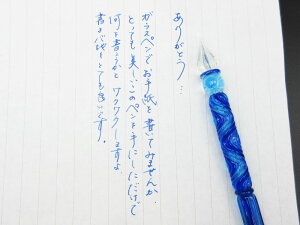 ありがとう…
ガラスペンでお手紙を書いてみませんか。
とっても美しいこのペンを手にしただけで
何を書こうかと ワクワクしますよ
書き心地もとても良いです。